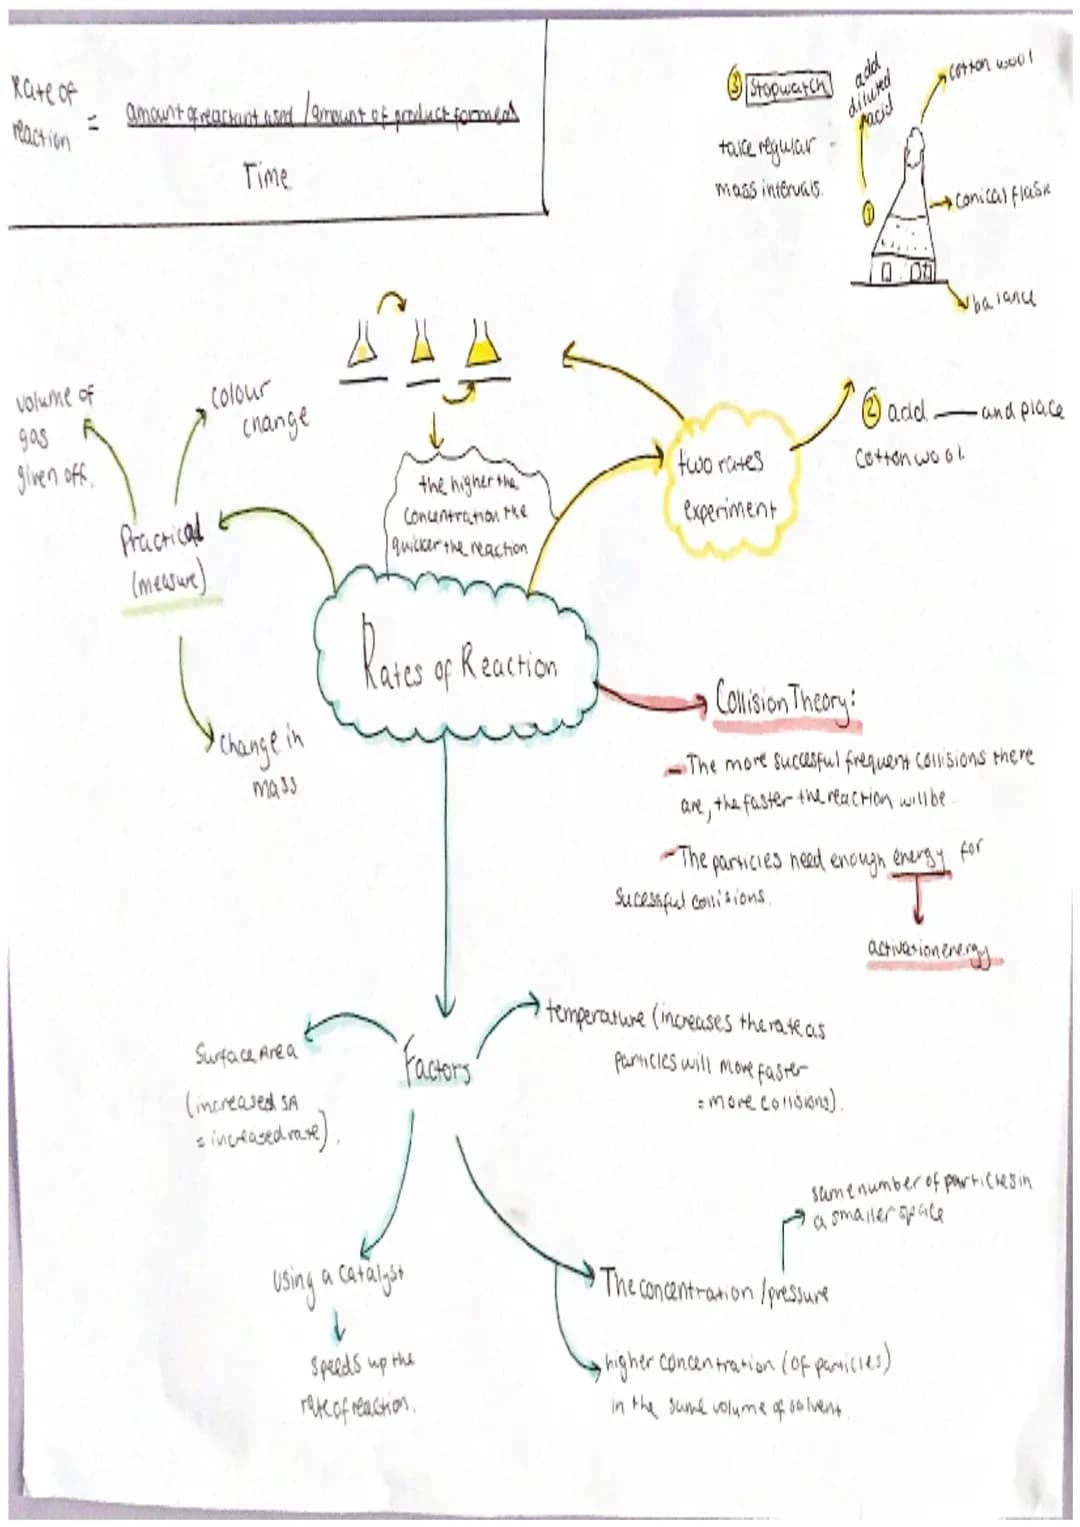 Rate of
reaction = amount of reactant used / amount of product formed
Time
③ Stopwatch
take regular
mass intervals.
add
diluted
acid
①
cotton wool
conical flask
balance
② add — and place
cotton wool
two rates
experiment
the higher the
concentration the
quicker the reaction
volume of
gas
given off.
colour
change
Practical
(measure)
change in
mass
Rates of Reaction
Collision Theory:
- The more succesful frequent collisions there
are, the faster the reaction will be.
- The particles need enough energy for
sucessful collisions.
activation energy
Factors
Surface Area
(increased SA
= increased rate).
temperature (increases the rate as
particles will move faster
= more collisions).
Using a catalyst
speeds up the
rate of reaction.
The concentration / pressure
same number of particles in
a smaller space
higher concentration (of particles)
in the same volume of solvent.